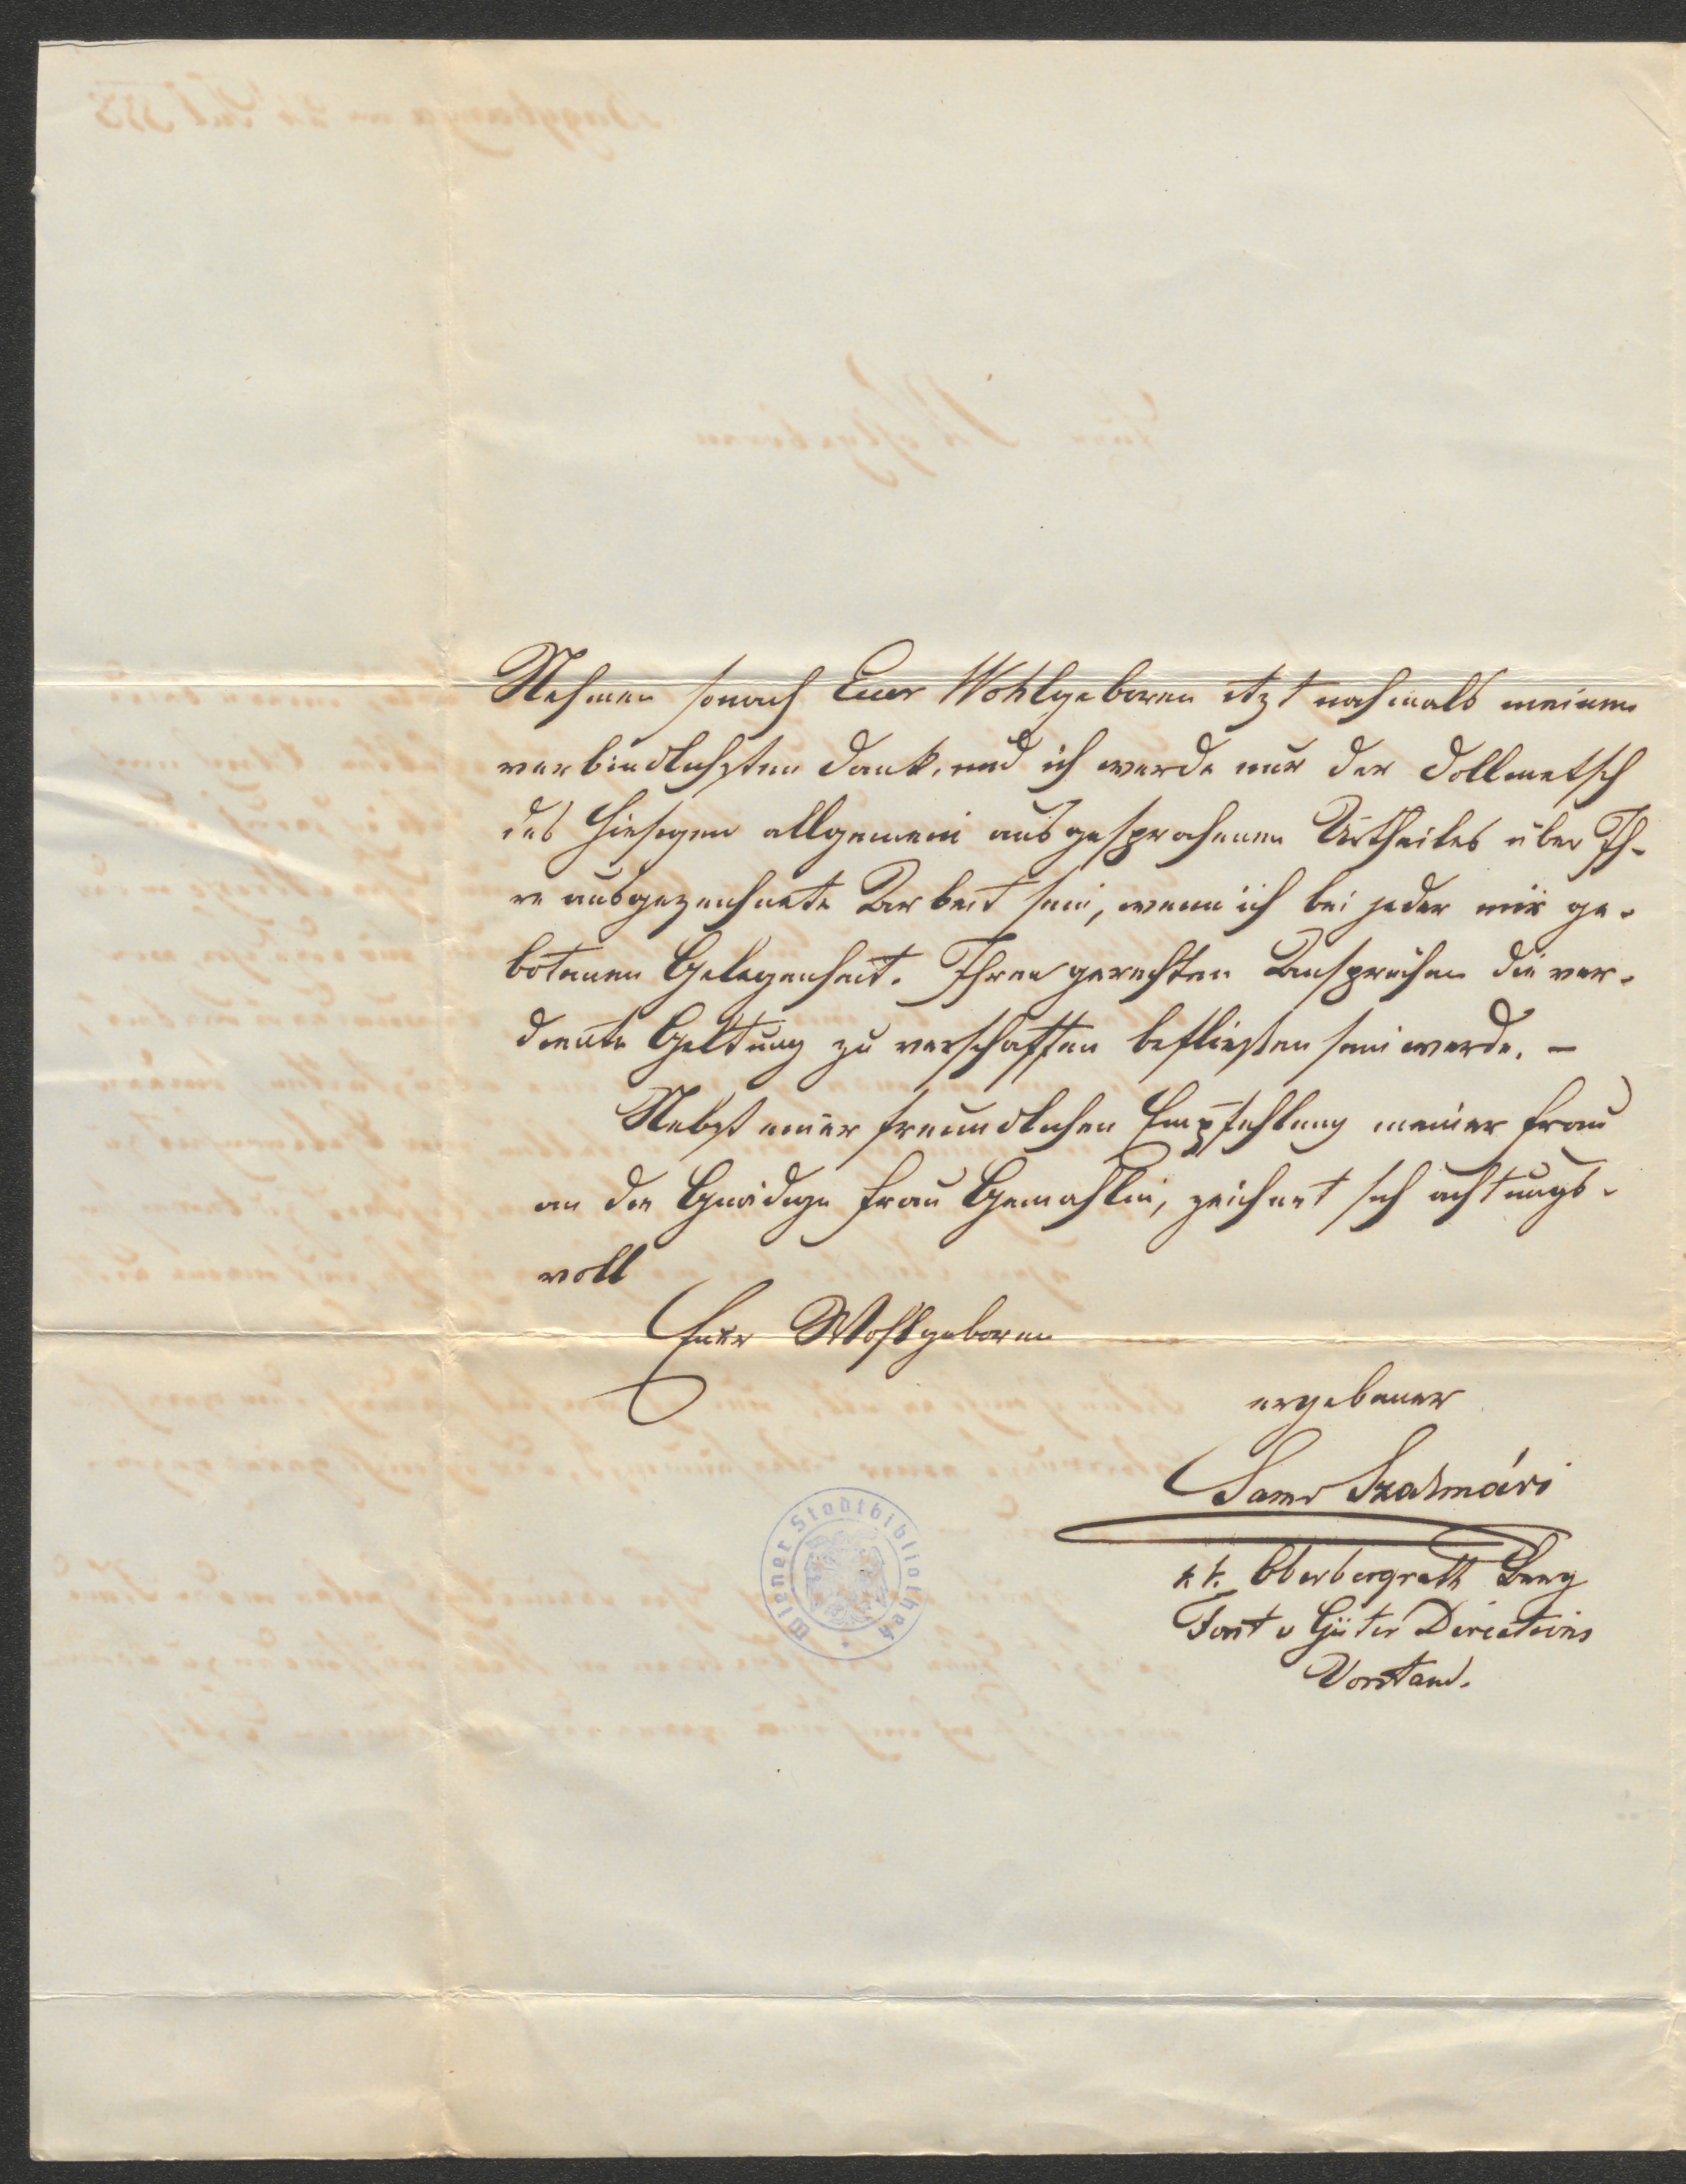 Nehmen sonach Euer Wohlgeboren itzt nochmals meinen
verbindlichsten Dank, und ich werde nur der Dollmetsch
des hiesigen allgemein ausgesprochenen Urtheiles über Ih-
re ausgezeichnete Arbeit sein, wenn ich bei jeder mir ge-
botenen Gelegenheit. Ihren gerechten Ansprüchen die ver-
diente Geltung zu verschaffen befließen sein werde. –
Nebst einer freundlichen Empfehlung meiner Frau
an die Gnädige Frau Gemahlin, zeichnet sich achtungs-
voll
Euer Wohlgeboren
ergebener
Szatmári
k.k. Oberbergrath Berg
Forst u Güter Directions
Vorstand.
Wiener Stadtbibliothek